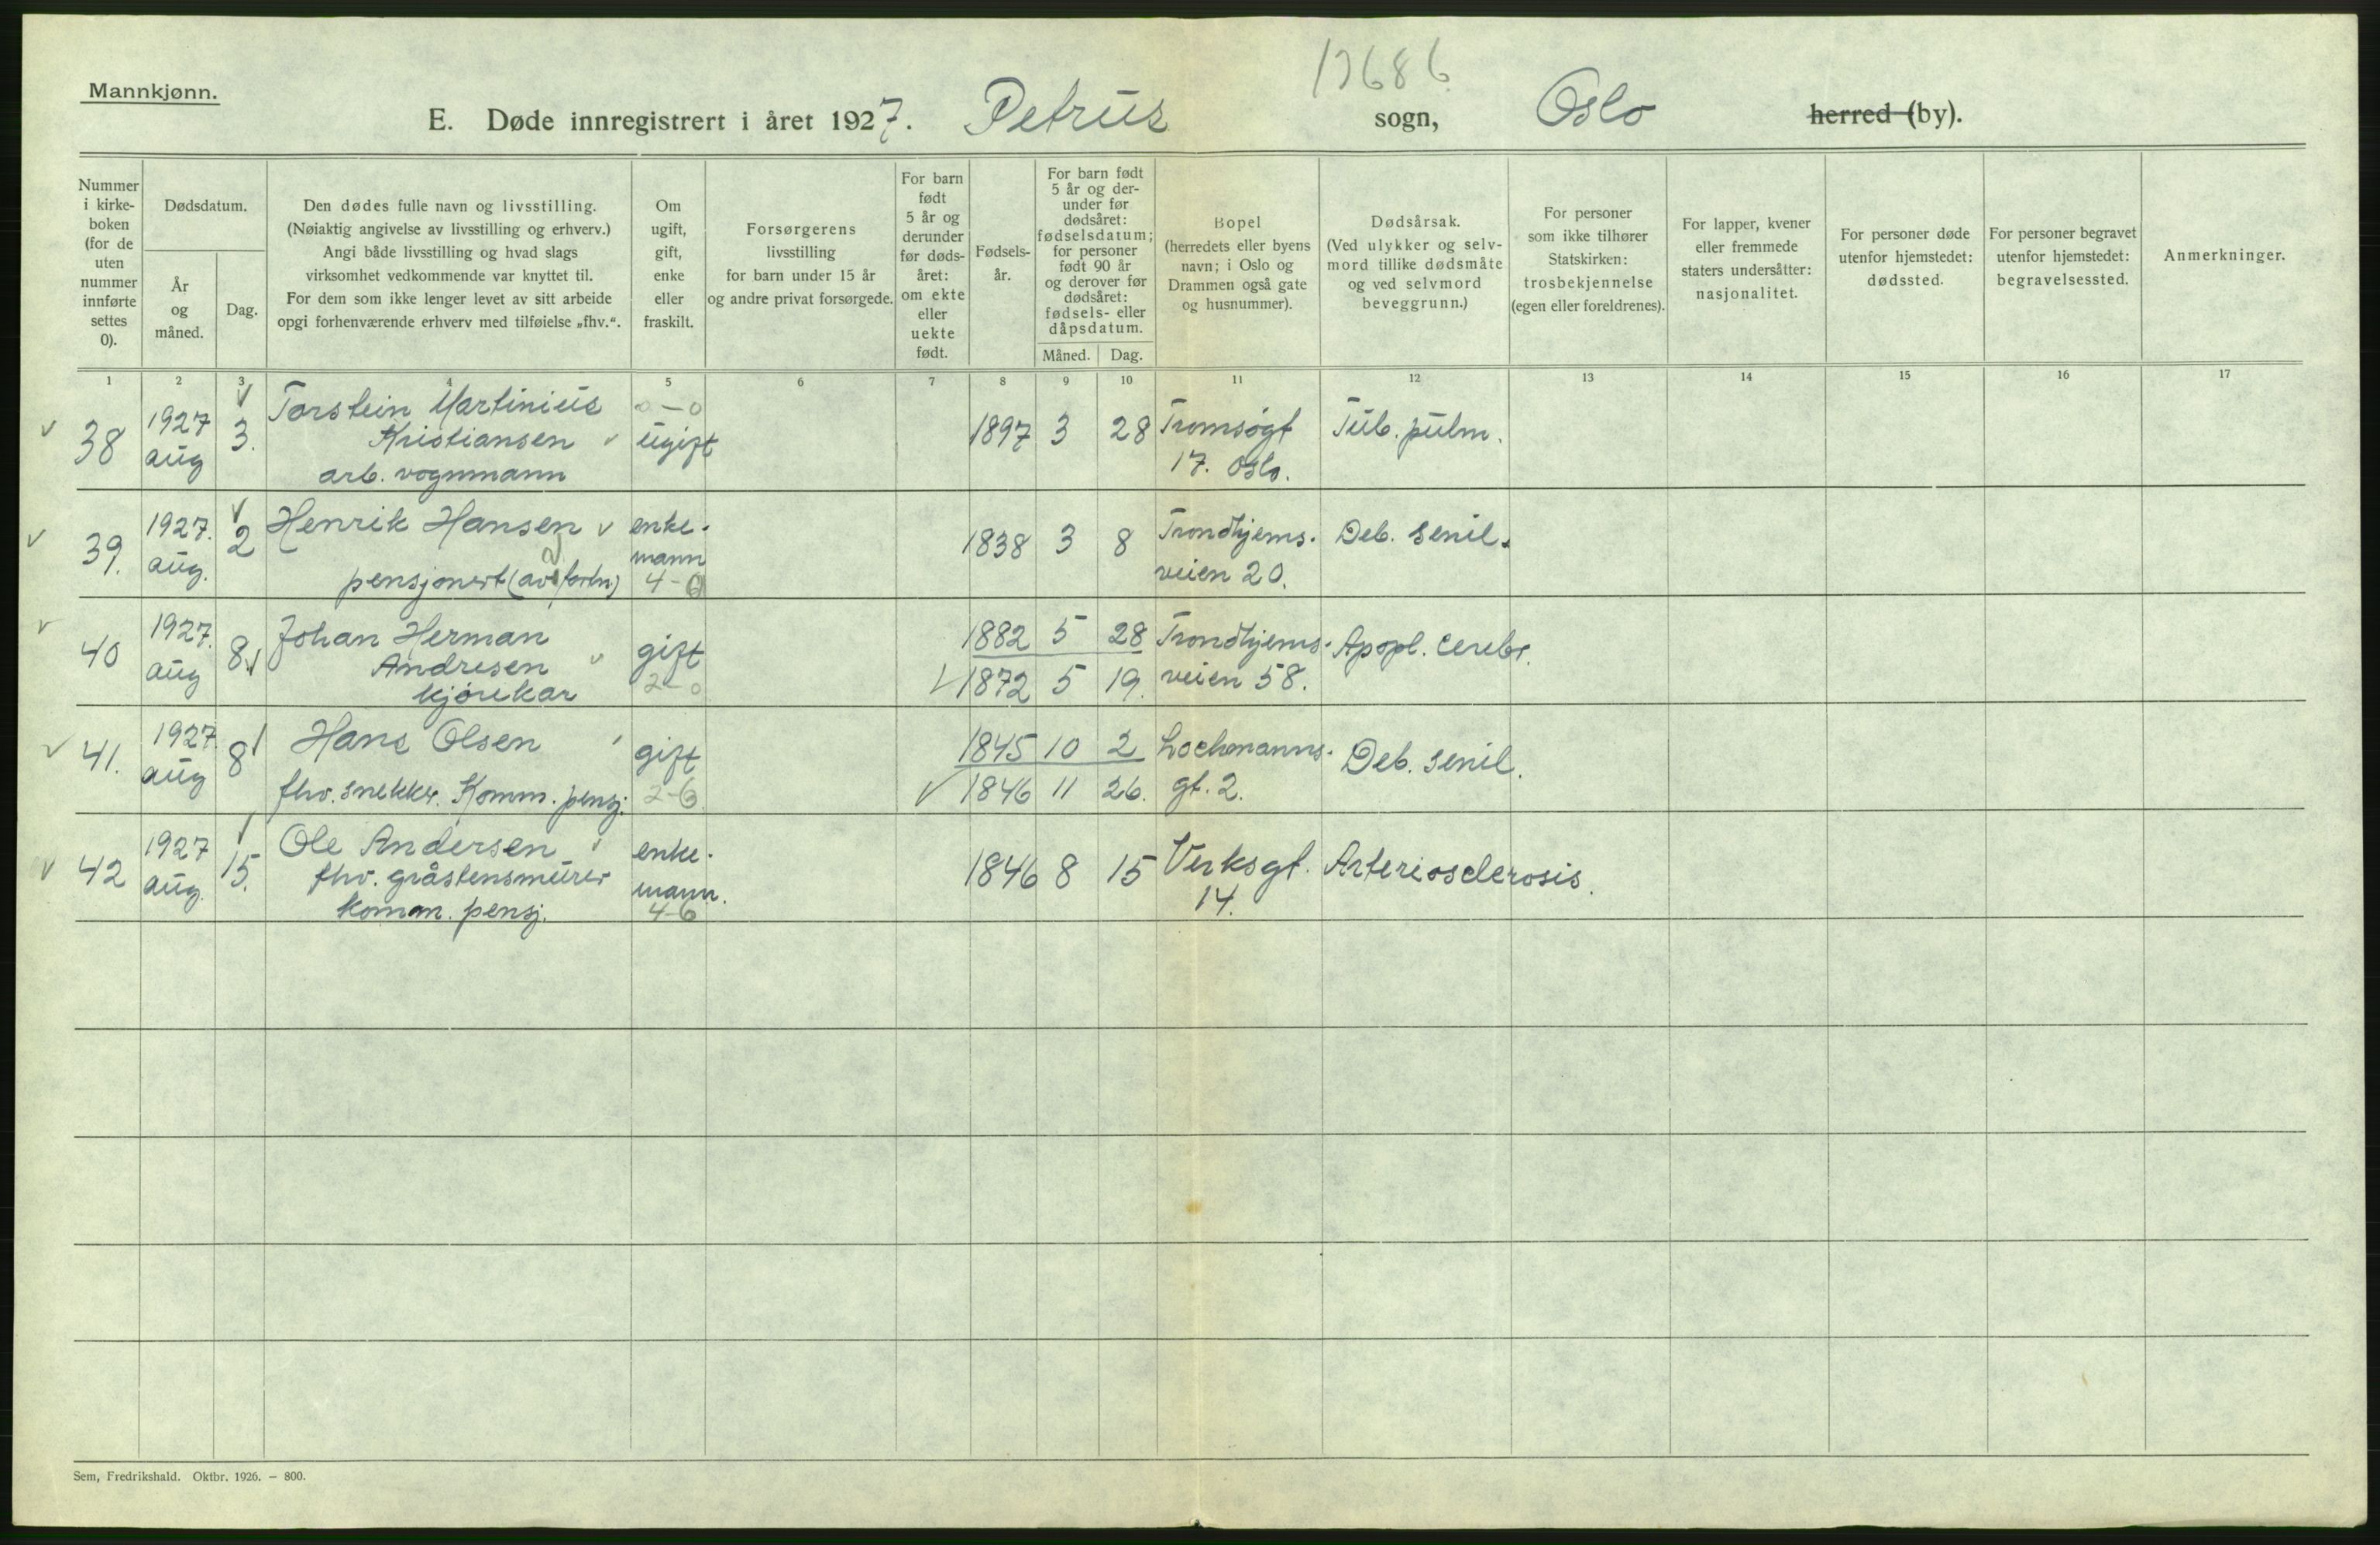 Mannkjønn.
13686
E. Døde innregistrert i året 1927. Petrus sogn, Oslo herred (by).
Nummer i kirke-boken (for de uten nummer innførte settes 0).
Dødsdatum.
År og måned.
Dag.
Den dødes fulle navn og livsstilling.
(Nøiaktig angivelse av livsstilling og erhverv.)
Angi både livsstilling og hvad slags
virksomhet vedkommende var knyttet til.
For dem som ikke lenger levet av sitt arbeide
opgi forhenværende erhverv med tilføielse „fhv.“.
Om ugift, gift, enke eller fraskilt.
Forsørgerens
livsstilling
for barn under 15 år
og andre privat forsørgede.
For barn født 5 år og derunder før døds-året: om ekte eller uekte født.
Fødsels-år.
For barn født 5 år og der-under før dødsåret: fødselsdatum; for personer født 90 år og derover før dødsåret: fødsels- eller dåpsdatum.
Måned.
Dag.
Bopel
(herredets eller byens
navn; i Oslo og
Drammen også gate
og husnummer).
Dødsårsak.
(Ved ulykker og selv-
mord tillike dødsmåte
og ved selvmord
beveggrunn.)
For personer
som ikke tilhører
Statskirken:
trosbekjennelse
(egen eller foreldrenes).
For lapper, kvener
eller fremmede
staters undersåtter:
nasjonalitet.
For personer døde
utenfor hjemstedet:
dødssted.
For personer begravet
utenfor hjemstedet:
begravelsessted.
Anmerkninger.
1 2 3 4 5 6 7 8 9 10 11 12 13 14 15 16 17
38 1927 aug 3. Torstein Martinius
Kristiansen
arb. vognmann
0-0
ugift 1897 3 28 Tromsøgt
17. Oslo. Tub. pulm.
39. 1927. aug. 2 Henrik Hansen
pensjonert (av forhv.)
enke-
mann
4-0
1838 3 8 Trondhjems-
veien 20. Deb. senil.
40 1927. aug 8 Johan Herman
Andresen
kjørekar
gift
2-0
1882 5 28
1872 5 19.
Trondhjems-
veien 58. Apopl. cerebr.
41. 1927 aug 8 Hans Olsen
fhv. snekker. Komm. pensj.
gift
2-6
1845 10 2
1846 11 26.
Lochmanns-
gt. 2. Deb. senil.
42 1927 aug. 15. Ole Andersen
fhv. gråstensmurer
komm. pensj.
enke-
mann.
4-6
1846 8 15 Verksgt.
14. Arteriosclerosis.
Sem, Fredrikshald. Oktbr. 1926. – 800.